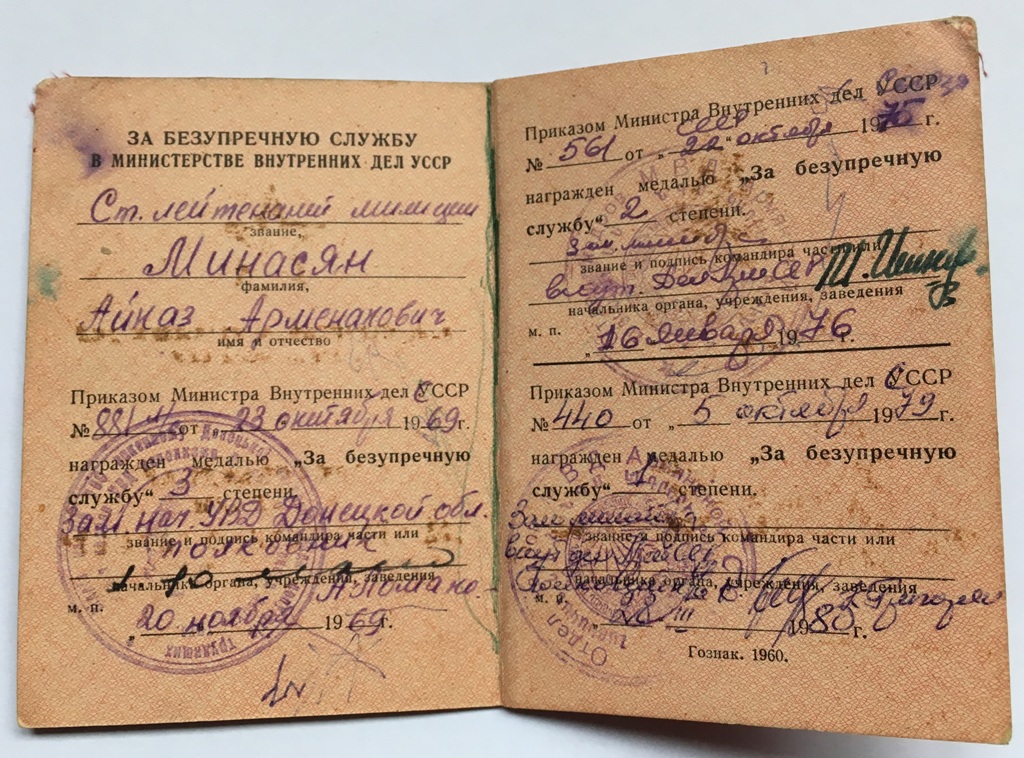 ЗА БЕЗУПРЕЧНУЮ СЛУЖБУ
В МИНИСТЕРСТВЕ ВНУТРЕННИХ ДЕЛ УССР
Ст. лейтенант милиции
звание,
Минасян
фамилия,
Айказ Арменакович
имя и отчество
Приказом Министра Внутренних дел УССР
№ 881 от „ 23 октября 1969 г.
награжден медалью „За безупречную
службу“ 3 степени.
Зам. нач. УВД Донецкой обл.
звание и подпись командира части или
полковник
начальника органа, учреждения, заведения
м. п.
„ 20 ноября 1969 г.
Приказом Министра Внутренних дел УССР
СССР
№ 561 от „ 22 “ октября 1975 г.
награжден медалью „За безупречную
службу“ 2 степени.
звание и подпись командира части или
внут. дел
начальника органа, учреждения, заведения
м. п.
„ 16 января 1976 г.
Приказом Министра Внутренних дел СССР
№ 440 от „ 5 октября 1979 г.
награжден медалью „За безупречную
службу“ 1 степени.
Зам
звание и подпись командира части или
внут дел
начальника органа, учреждения, заведения
м. п.
III 1980 г.
Гознак. 1960.